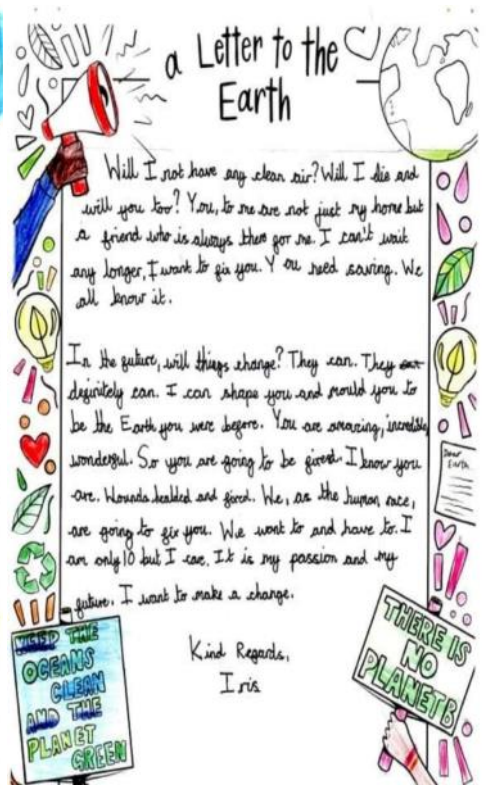 a Letter to the
Earth
Will I not have any clean air? Will I die and
will you too? You, to me are not just my home but
a friend who is always there for me. I can't wait
any longer, I want to fix you. You need saving. We
all know it.
In the future, will things change? They can. They
definitely can. I can shape you and mould you to
be the Earth you were before. You are amazing, incredible,
wonderful. So you are going to be fixed. I know you
are. Wounds healded and fixed. We, as the human race,
are going to fix you. We want to and have to. I
am only 10 but I can. It is my passion and my
future. I want to make a change.
Kind Regards,
Iris
Dear
Earth
KEEP THE
OCEANS
CLEAN
AND THE
PLANET
GREEN
THERE IS
NO
PLANET B